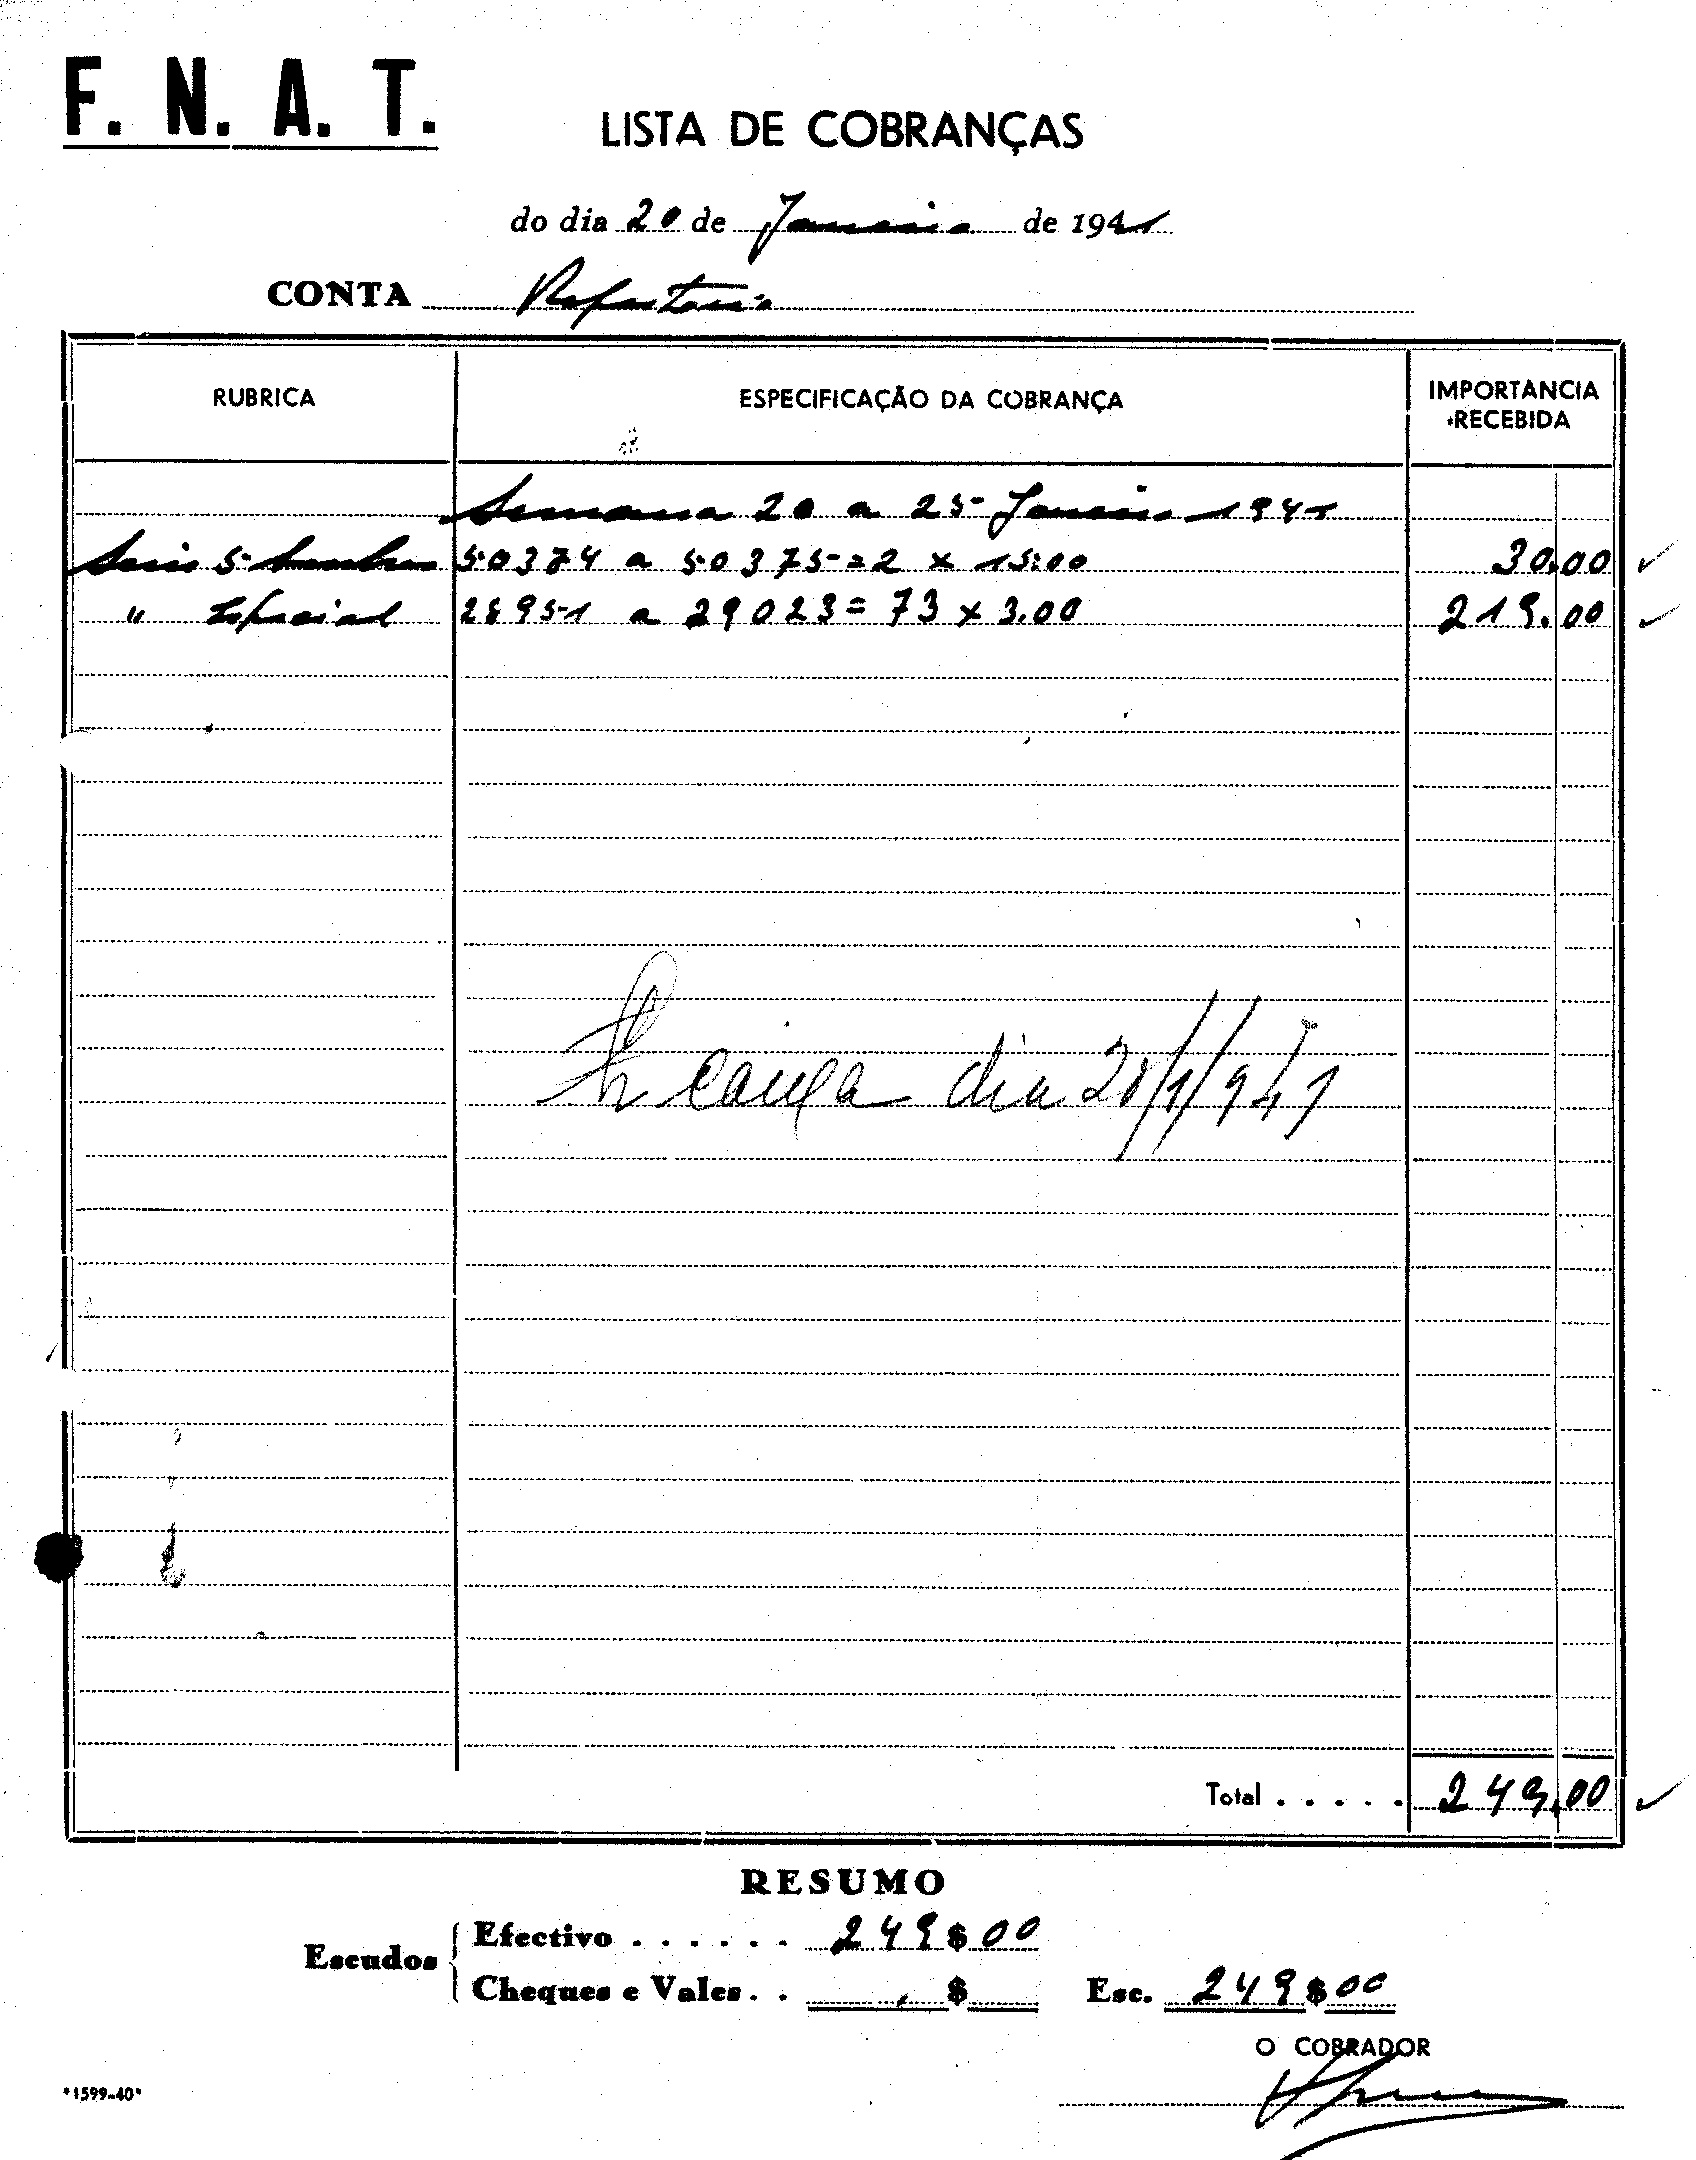 F. N. A. T.
LISTA DE COBRANÇAS
do dia 20 de Janeiro de 1941
CONTA Refeitorio
RUBRICA ESPECIFICAÇÃO DA COBRANÇA IMPORTANCIA RECEBIDA
Semana 20 a 25 Janeiro 1941
5 50374 a 50375 = 2 x 15.00 30.00
" Especial 28951 a 29023 = 73 x 3.00 219.00
caixa dia 20/1/941
Total . . . . . 249,00
RESUMO
Escudos
Efectivo . . . . . . 249$00
Cheques e Vales . . $
Esc. 249$00
O COBRADOR
*1599-40*